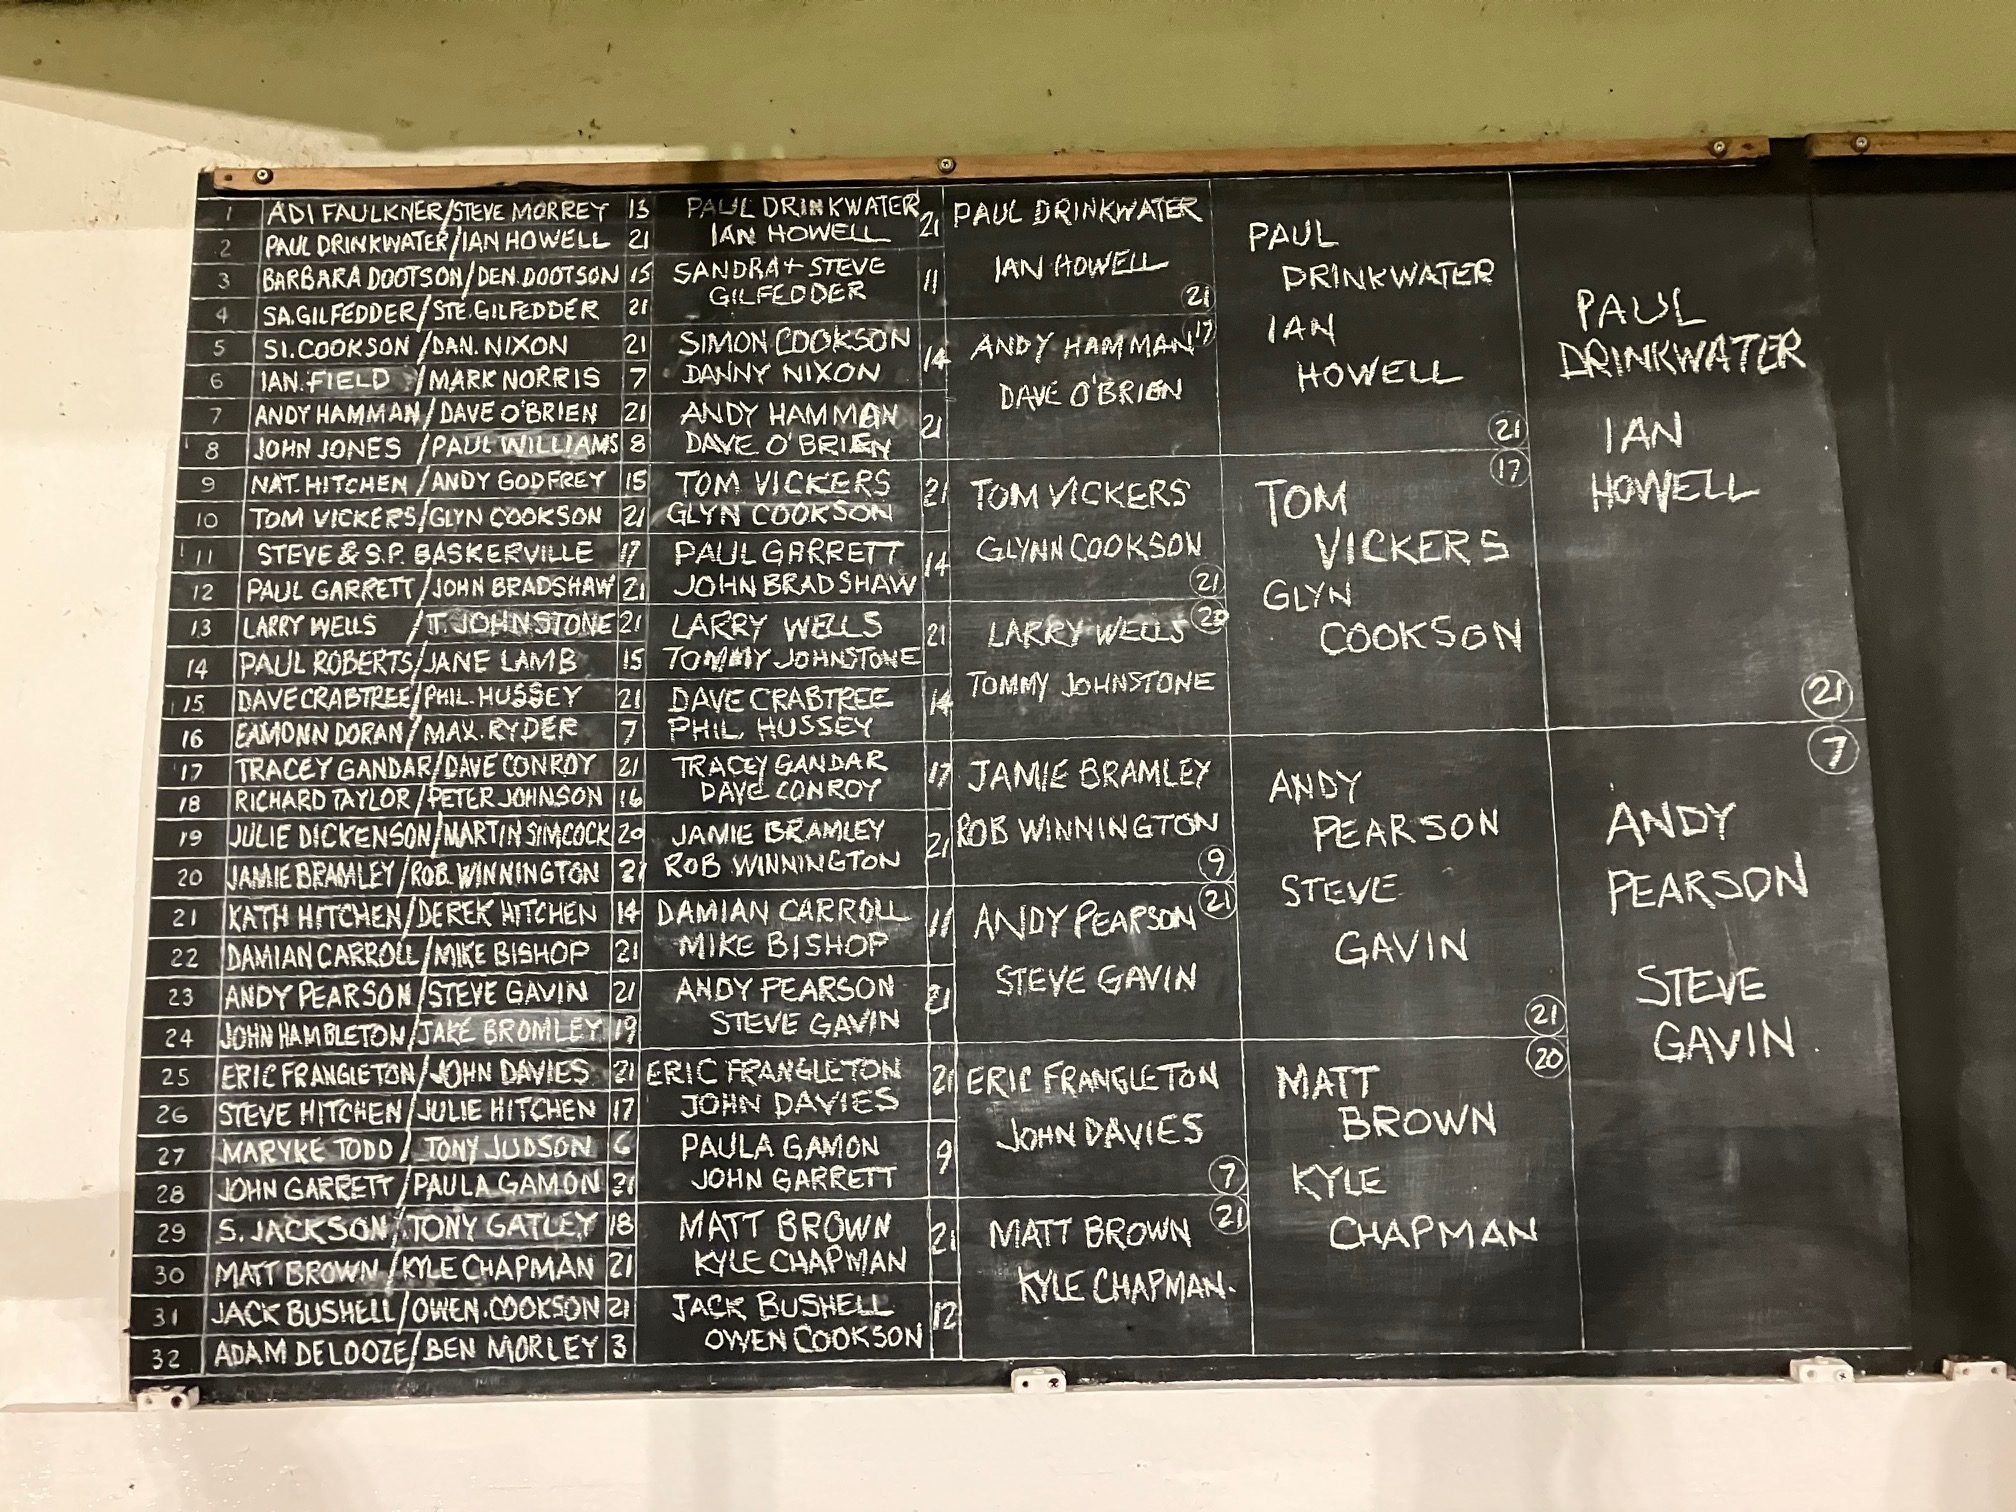 1 ADI FAULKNER/STEVE MORREY 13
2 PAUL DRINKWATER/IAN HOWELL 21
3 BARBARA DOOTSON/DEN. DOOTSON 15
4 SA. GILFEDDER/STE. GILFEDDER 21
5 SI. COOKSON/DAN. NIXON 21
6 IAN. FIELD/MARK NORRIS 7
7 ANDY HAMMAN/DAVE O'BRIEN 21
8 JOHN JONES/PAUL WILLIAMS 8
9 NAT. HITCHEN/ANDY GODFREY 15
10 TOM VICKERS/GLYN COOKSON 21
11 STEVE & S.P. BASKERVILLE 17
12 PAUL GARRETT/JOHN BRADSHAW 21
13 LARRY WELLS/T. JOHNSTONE 21
14 PAUL ROBERTS/JANE LAMB 15
15 DAVE CRABTREE/PHIL. HUSSEY 21
16 EAMONN DORAN/MAX. RYDER 7
17 TRACEY GANDAR/DAVE CONROY 21
18 RICHARD TAYLOR/PETER JOHNSON 16
19 JULIE DICKENSON/MARTIN SIMCOCK 20
20 JAMIE BRAMLEY/ROB. WINNINGTON 21
21 KATH HITCHEN/DEREK HITCHEN 14
22 DAMIAN CARROLL/MIKE BISHOP 21
23 ANDY PEARSON/STEVE GAVIN 21
24 JOHN HAMBLETON/JAKE BROMLEY 19
25 ERIC FRANGLETON/JOHN DAVIES 21
26 STEVE HITCHEN/JULIE HITCHEN 17
27 MARYKE TODD/TONY JUDSON 6
28 JOHN GARRETT/PAULA GAMON 21
29 S. JACKSON/TONY GATLEY 18
30 MATT BROWN/KYLE CHAPMAN 21
31 JACK BUSHELL/OWEN. COOKSON 21
32 ADAM DELOOZE/BEN MORLEY 3
PAUL DRINKWATER 21
IAN HOWELL
SANDRA + STEVE 11
GILFEDDER
SIMON COOKSON 14
DANNY NIXON
ANDY HAMMAN 21
DAVE O'BRIEN
TOM VICKERS 21
GLYN COOKSON
PAUL GARRETT 14
JOHN BRADSHAW
LARRY WELLS 21
TOMMY JOHNSTONE
DAVE CRABTREE 14
PHIL HUSSEY
TRACEY GANDAR 17
DAVE CONROY
JAMIE BRAMLEY 21
ROB WINNINGTON
DAMIAN CARROLL 11
MIKE BISHOP
ANDY PEARSON 21
STEVE GAVIN
ERIC FRANGLETON 21
JOHN DAVIES
PAULA GAMON 9
JOHN GARRETT
MATT BROWN 21
KYLE CHAPMAN
JACK BUSHELL 12
OWEN COOKSON
PAUL DRINKWATER
IAN HOWELL
21
17
ANDY HAMMAN
DAVE O'BRIEN
TOM VICKERS
GLYNN COOKSON
21
20
LARRY WELLS
TOMMY JOHNSTONE
JAMIE BRAMLEY
ROB WINNINGTON
9
21
ANDY PEARSON
STEVE GAVIN
ERIC FRANGLETON
JOHN DAVIES
7
21
MATT BROWN
KYLE CHAPMAN.
PAUL
DRINKWATER
IAN
HOWELL
21
17
TOM
VICKERS
GLYN
COOKSON
ANDY
PEARSON
STEVE
GAVIN
21
20
MATT
BROWN
KYLE
CHAPMAN
PAUL
DRINKWATER
IAN
HOWELL
21
7
ANDY
PEARSON
STEVE
GAVIN